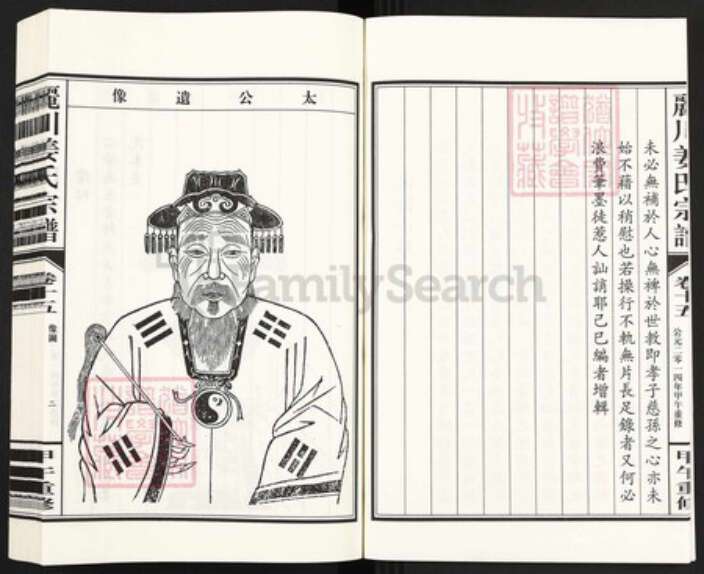 麗川姜氏宗譜
卷十五
公元二零一四年甲午重修
甲午重修
未必無補於人心無裨於世教即孝子慈孫之心亦未
始不藉以稍慰也若操行不軌無片長足錄者又何必
浪費筆墨徒惹人訕誚耶己巳編者增輯
太公遺像
麗川姜氏宗譜
卷十五
像圖
二
甲午重修
FamilySearch